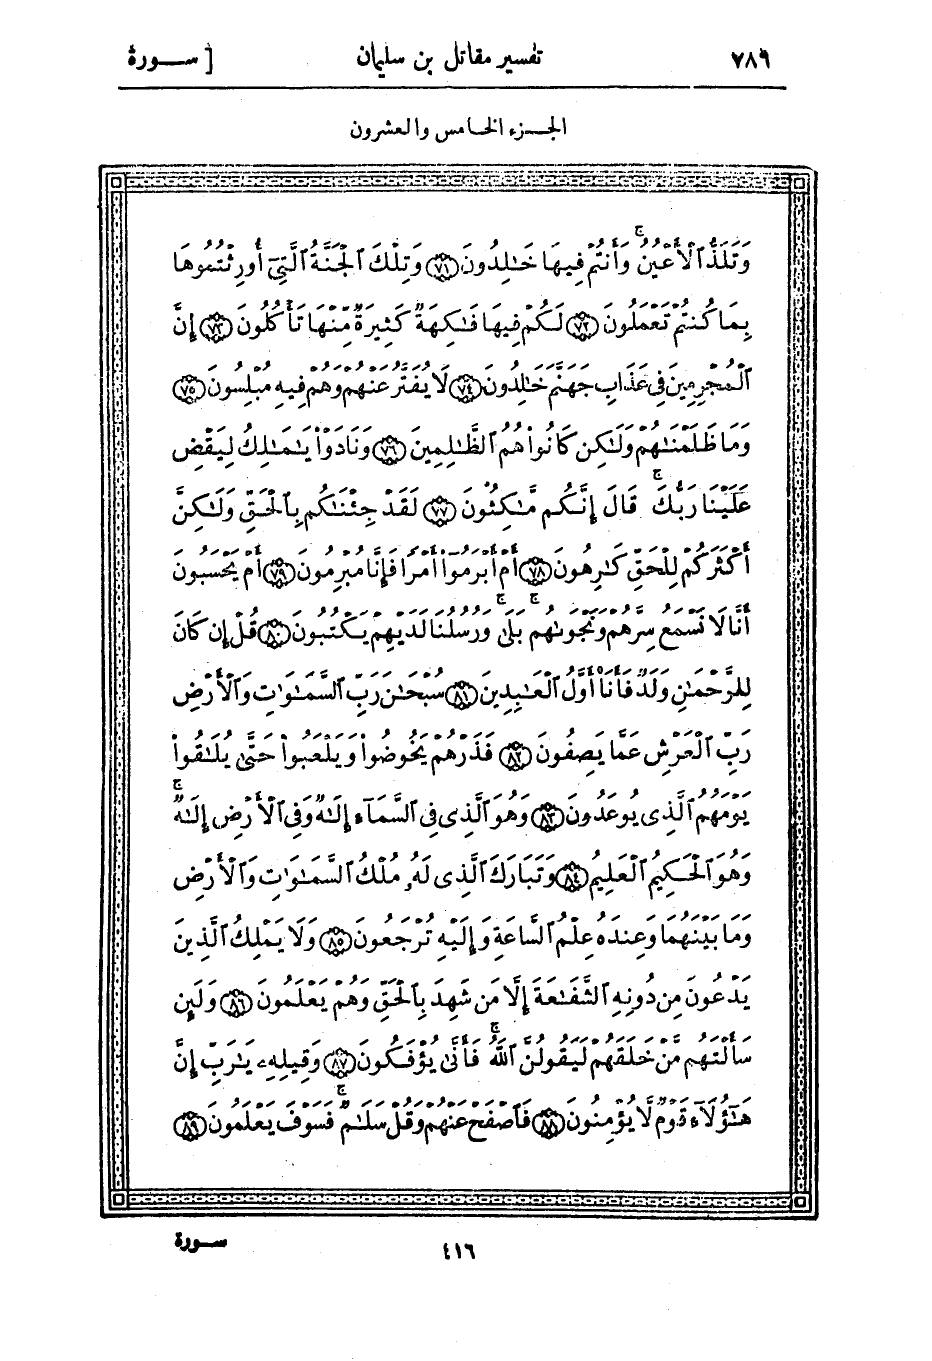 ٧٨٩ تفسير مقاتل بن سليمان [ ســورة
الجـزء الخامس والعشرون
وَتَلَذُّ ٱلْأَعْيُنُ ۖ وَأَنتُمْ فِيهَا خَـٰلِدُونَ ٧١ وَتِلْكَ ٱلْجَنَّةُ ٱلَّتِىٓ أُورِثْتُمُوهَا
بِمَا كُنتُمْ تَعْمَلُونَ ٧٢ لَكُمْ فِيهَا فَـٰكِهَةٌ كَثِيرَةٌ مِّنْهَا تَأْكُلُونَ ٧٣ إِنَّ
ٱلْمُجْرِمِينَ فِى عَذَابِ جَهَنَّمَ خَـٰلِدُونَ ٧٤ لَا يُفَتَّرُ عَنْهُمْ وَهُمْ فِيهِ مُبْلِسُونَ ٧٥
وَمَا ظَلَمْنَـٰهُمْ وَلَـٰكِن كَانُوا۟ هُمُ ٱلظَّـٰلِمِينَ ٧٦ وَنَادَوْا۟ يَـٰمَـٰلِكُ لِيَقْضِ
عَلَيْنَا رَبُّكَ ۖ قَالَ إِنَّكُم مَّـٰكِثُونَ ٧٧ لَقَدْ جِئْنَـٰكُم بِٱلْحَقِّ وَلَـٰكِنَّ
أَكْثَرَكُمْ لِلْحَقِّ كَـٰرِهُونَ ٧٨ أَمْ أَبْرَمُوٓا۟ أَمْرًا فَإِنَّا مُبْرِمُونَ ٧٩ أَمْ يَحْسَبُونَ
أَنَّا لَا نَسْمَعُ سِرَّهُمْ وَنَجْوَىٰهُم ۚ بَلَىٰ ۚ وَرُسُلُنَا لَدَيْهِمْ يَكْتُبُونَ ٨٠ قُلْ إِن كَانَ
لِلرَّحْمَـٰنِ وَلَدٌ فَأَنَا۠ أَوَّلُ ٱلْعَـٰبِدِينَ ٨١ سُبْحَـٰنَ رَبِّ ٱلسَّمَـٰوَٰتِ وَٱلْأَرْضِ
رَبِّ ٱلْعَرْشِ عَمَّا يَصِفُونَ ٨٢ فَذَرْهُمْ يَخُوضُوا۟ وَيَلْعَبُوا۟ حَتَّىٰ يُلَـٰقُوا۟
يَوْمَهُمُ ٱلَّذِى يُوعَدُونَ ٨٣ وَهُوَ ٱلَّذِى فِى ٱلسَّمَآءِ إِلَـٰهٌ وَفِى ٱلْأَرْضِ إِلَـٰهٌ ۚ
وَهُوَ ٱلْحَكِيمُ ٱلْعَلِيمُ ٨٤ وَتَبَارَكَ ٱلَّذِى لَهُۥ مُلْكُ ٱلسَّمَـٰوَٰتِ وَٱلْأَرْضِ
وَمَا بَيْنَهُمَا وَعِندَهُۥ عِلْمُ ٱلسَّاعَةِ وَإِلَيْهِ تُرْجَعُونَ ٨٥ وَلَا يَمْلِكُ ٱلَّذِينَ
يَدْعُونَ مِن دُونِهِ ٱلشَّفَـٰعَةَ إِلَّا مَن شَهِدَ بِٱلْحَقِّ وَهُمْ يَعْلَمُونَ ٨٦ وَلَئِن
سَأَلْتَهُم مَّنْ خَلَقَهُمْ لَيَقُولُنَّ ٱللَّهُ ۖ فَأَنَّىٰ يُؤْفَكُونَ ٨٧ وَقِيلِهِۦ يَـٰرَبِّ إِنَّ
هَـٰٓؤُلَآءِ قَوْمٌ لَّا يُؤْمِنُونَ ٨٨ فَٱصْفَحْ عَنْهُمْ وَقُلْ سَلَـٰمٌ ۚ فَسَوْفَ يَعْلَمُونَ ٨٩
ســورة
٤١٦